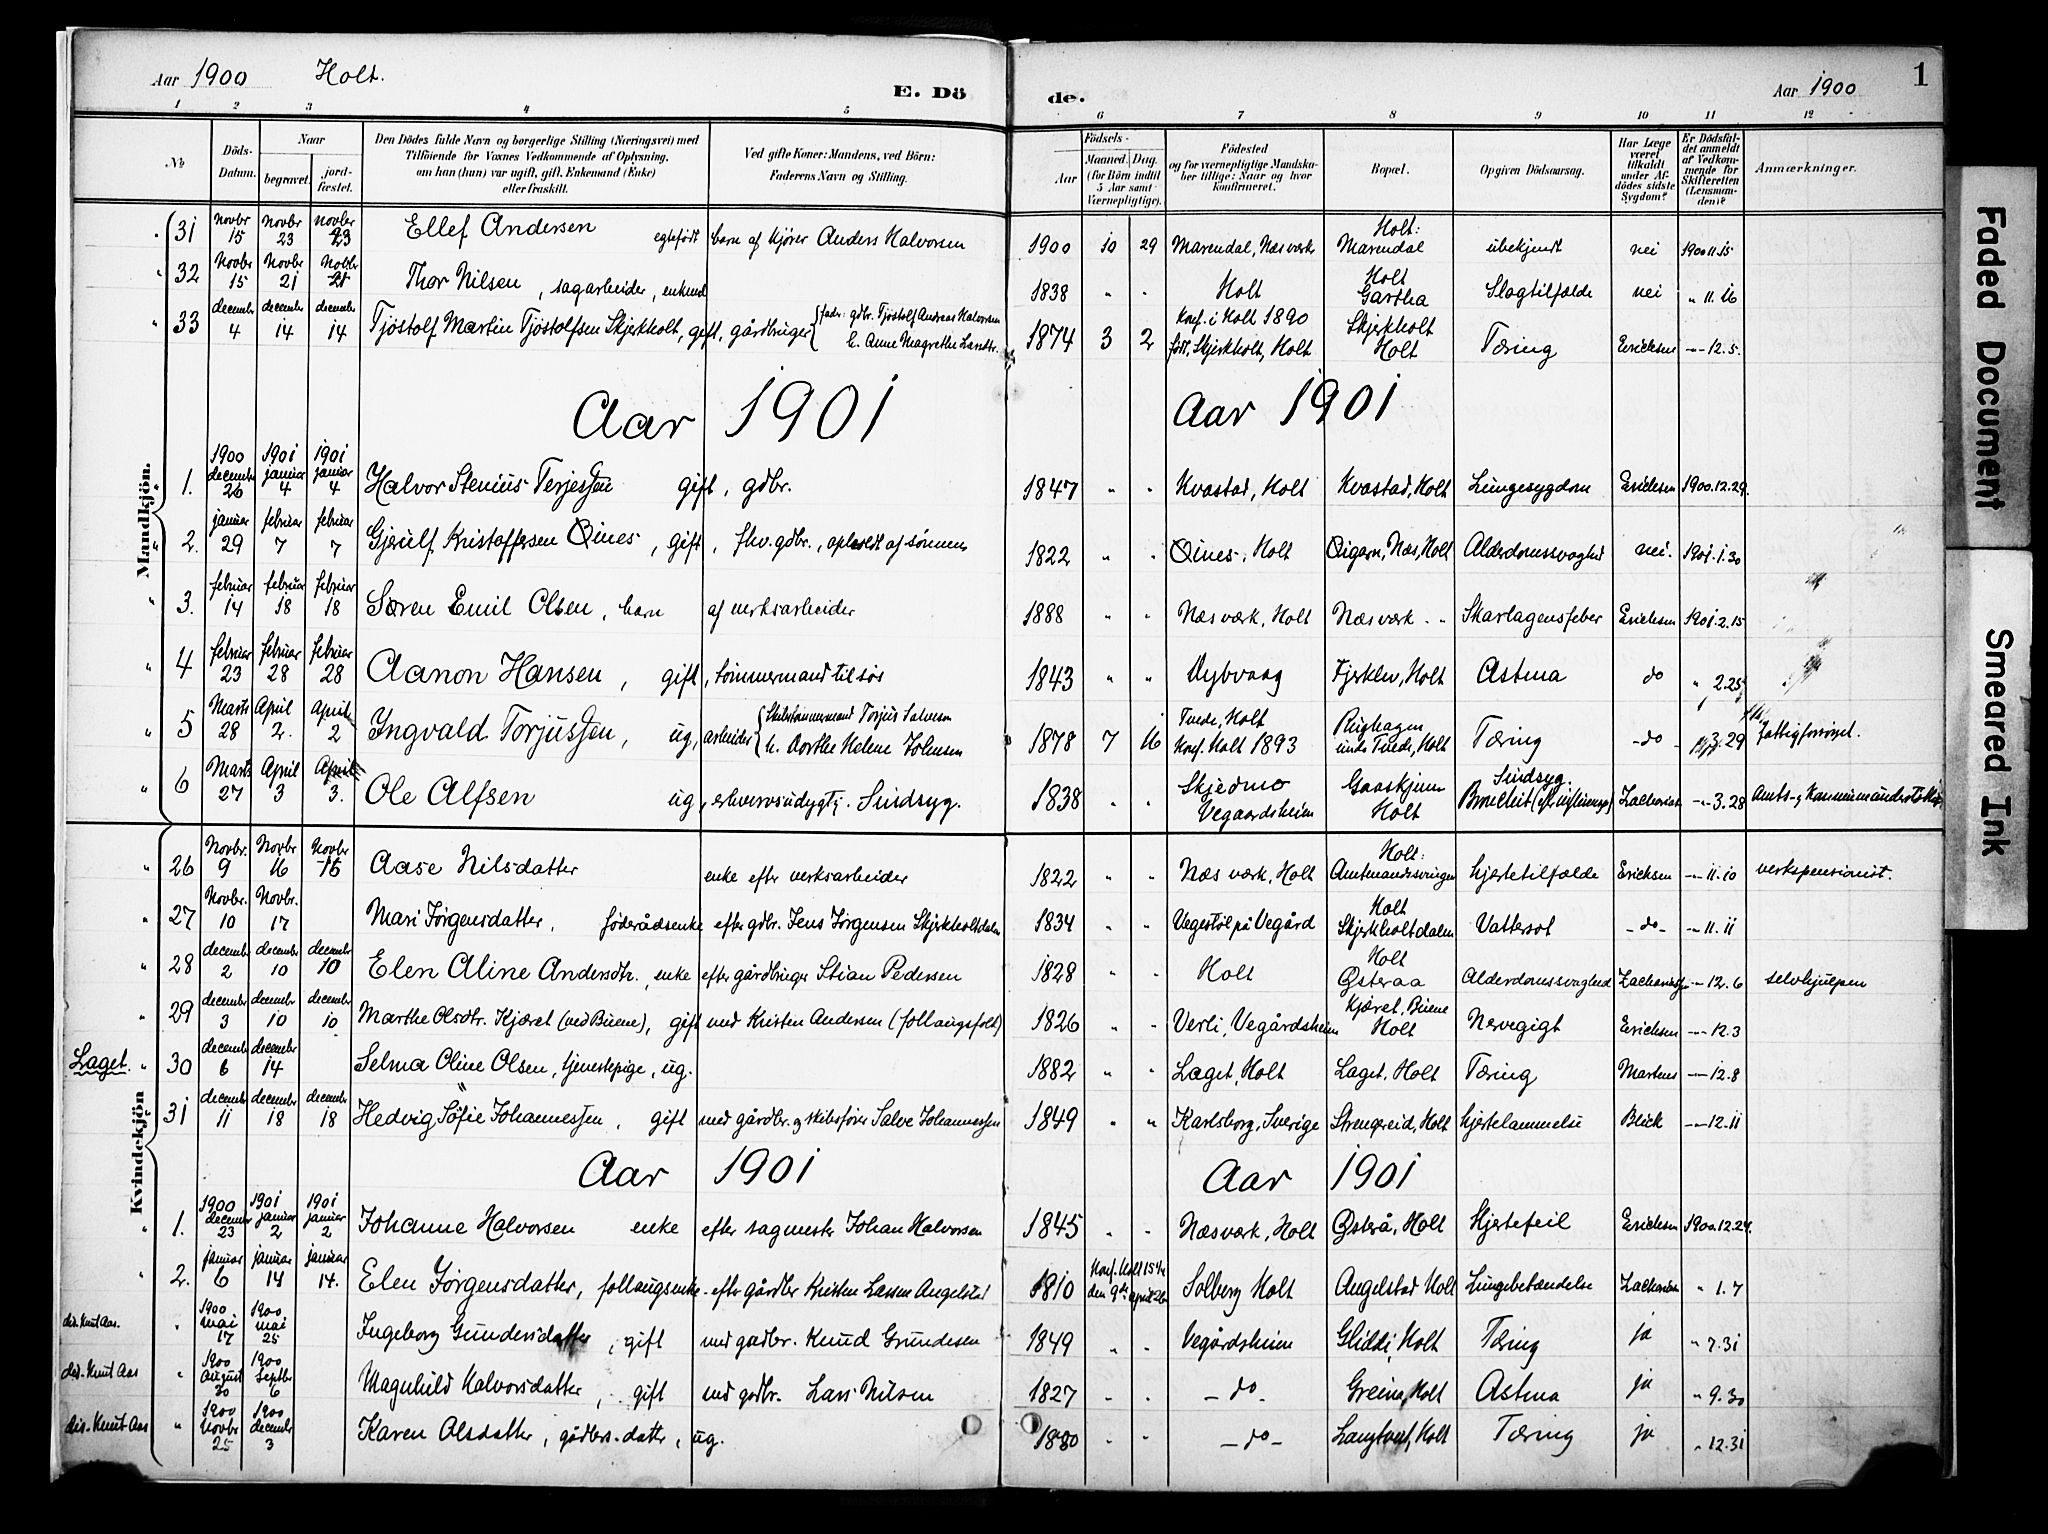 Aar 1900 Holt. E. Dö de. Aar 1900 1
1 2 3 4 5 6 7 8 9 10 11 12
No Döds-Datum. Naar begravet. jord-fæstet. Den Dödes fulde Navn og borgerlige Stilling (Næringsvei) med Tilföiende for Voxnes Vedkommende af Oplysning, om han (hun) var ugift, gift, Enkemand (Enke) eller fraskilt. Ved gifte Koner: Mandens, ved Börn: Faderens Navn og Stilling. Födsels- Aar Maaned. Dag. (for Börn indtil 5 Aar samt Værnepligtige). Födested og for værnepligtige Mandska-ber tillige: Naar og hvor konfirmeret. Bopæl. Opgiven Dödsaarsag. Har Læge været tilkaldt under Af-dödes sidste Sygdom? Er Dödsfal-det anmeldt af Vedkom-mende for Skifteretten (Lensman-den)? Anmærkninger.
Mandkjön.
31 Novbr 15 Novbr 23 Novbr 23 Ellef Andersen egtefödt barn af kjörer Anders Halvorsen 1900 10 29 Marendal, Næsværk Holt: Marendal ubekjendt nei 1900 11.15
" 32 Novbr 15 Novbr 21 Novbr 21 Thor Nilsen, sagarbeider, enkmd 1838 " " Holt Holt Gartha Slagtilfælde nei " 11.16
" 33 december 4 december 14 december 14 Tjöstolf Martin Tjöstolfsen Skjerkholt, gift, gårdbruger { fader: gdbr. Tjöstolf Andreas Halvorsen h. Anne Magrethe Larsdtr. 1874 3 2 Konf. i Holt 1890 födt, Skjerkholt, Holt Skjerkholt Holt Tæring Ericksen -"- 12.5.
Aar 1901 Aar 1901
" 1. 1900 december 26 1901 januar 4 1901 januar 4 Halvor Stenius Terjessen gift, gdbr. 1847 " " Kvastad, Holt Kvastad, Holt Lungesygdom Ericksen 1900.12.29.
" 2. januar 29 februar 7 februar 7 Gjerulf Kristoffersen Øines, gift, fhv. gdbr., oplosdt af sönnen 1822 " " Øines, Holt Øigarn, Næs, Holt Alderdomssvaghed nei. 1901.1.30
" 3. februar 14 februar 18 februar 18 Søren Emil Olsen, barn af verksarbeider 1888 " " Næs værk, Holt Næsværk - " Skarlagensfeber Ericksen 1901.2.15
" 4 februar 23 februar 28 februar 28 Aanon Hansen, gift, tömmermand tilsös 1843 " " Dybvaag Fjerklev, Holt Astma do " 2.25
" 5 Marts 28 April 2. April 2 Ingvald Torjussen, ug, arbeider { Skibstömmermand Torjus Salvesen h. Dorthe Helene Johnsen 1878 7 16 Tvede, Holt Konf. Holt 1893 Rughagen unds Tvede, Holt Tæring -do- 3.29 Fattigforsörget.
" 6 Marts 27 April 3 April 3. Ole Alfsen ug, erhvervsudygtig. Sindsyg. 1838 " " Skjedmo Vegaardsheien Gaaskjenn Holt Sindsyg.  Zachariasen -"- 3.28
Kvindekjön
" 26 Novbr. 9 Novbr 16 Novbr 16 Aase Nilsdatter enke efter verksarbeider 1822 " " Næs værk, Holt Holt: Amtmandssvingen hjertetilfælde Ericksen -"- 11.10 verkspensionist.
" 27 Novbr. 10 Novbr. 17 Mari Jørgensdatter, föderådsenke efter gdbr. Jens Jørgensen Skjerkholtdalen 1834 " " Vegestöl på Vegård Holt Skjerkholtdalen Vattersot -do- -"- 11.11
" 28 december 2 december 10 december 10 Elen Aline Andersdtr., enke efter gårdbruger Stian Pedersen 1828 " " Holt Holt Østeraa Alderdomssvaghed Zachariassen -"- 12.6 selvhjulpen
" 29 december 3 december 10 december 10 Marthe Olsdtr. Kjæret (ved Buene), gift med Kristen Andersen (follaugsfolk) 1826 " " Verli, Vegårdsheien Kjæret, Buene Holt Nervegigt Ericksen -"- 12.3
Laget. " 30 december 6 december 14 Selma Oline Olsen, tjenestepige, ug. 1882 " " Laget, Holt Laget, Holt Tæring Martens -"- 12.8
31 december 11 december 18 december 18 Hedvig Söfie Johannessen, gift med gårdbr. og skibsförer Salve Johannessen 1849 " " Karlsborg, Sverige Strengereid, Holt hjertelammelse Blick -"- 12.11
Aar 1901 Aar 1901
" 1. 1900 december 23 1901 januar 2 1901 januar 2 Johanne Halvorsen enke efter sagmester Johan Halvorsen 1845 " " Næsværk, Holt Østerå, Holt Hjertefeil Ericksen 1900.12.24.
" 2. januar 6 januar 14 januar 14. Elen Jørgensdatter, follaugsenke efter gårdbr Kristen Larsen Angelstad 1810 Konf. Holt den 9de april 26 Solberg Holt Angelstad Holt Lungebetændelse Zachariasen " 1.7
dis. Knut Aas. " 1900 mai 17 1900 mai 25 Ingeborg Gundersdatter, gift med gaardbr. Knud Grundesen 1849 " " Vegårdsheien Gliddi, Holt Tæring ja " 7.31
dis. Knut Aas " 1900 august 30 1900 septbr 6 Magnhild Halvorsdatter, gift med gardbr. Lars Nilsen 1827 " " -do- Greina, Holt Astma ja " 9.30
dis. Knut Aas " 1900 Novbr 25 1900 december 3 Karen Olsdatter, gårdbrs. datter, ug. 1880 " " -do- Langtvet, Holt Tæring ja " 12.31
Faded Document
Smeared Ink